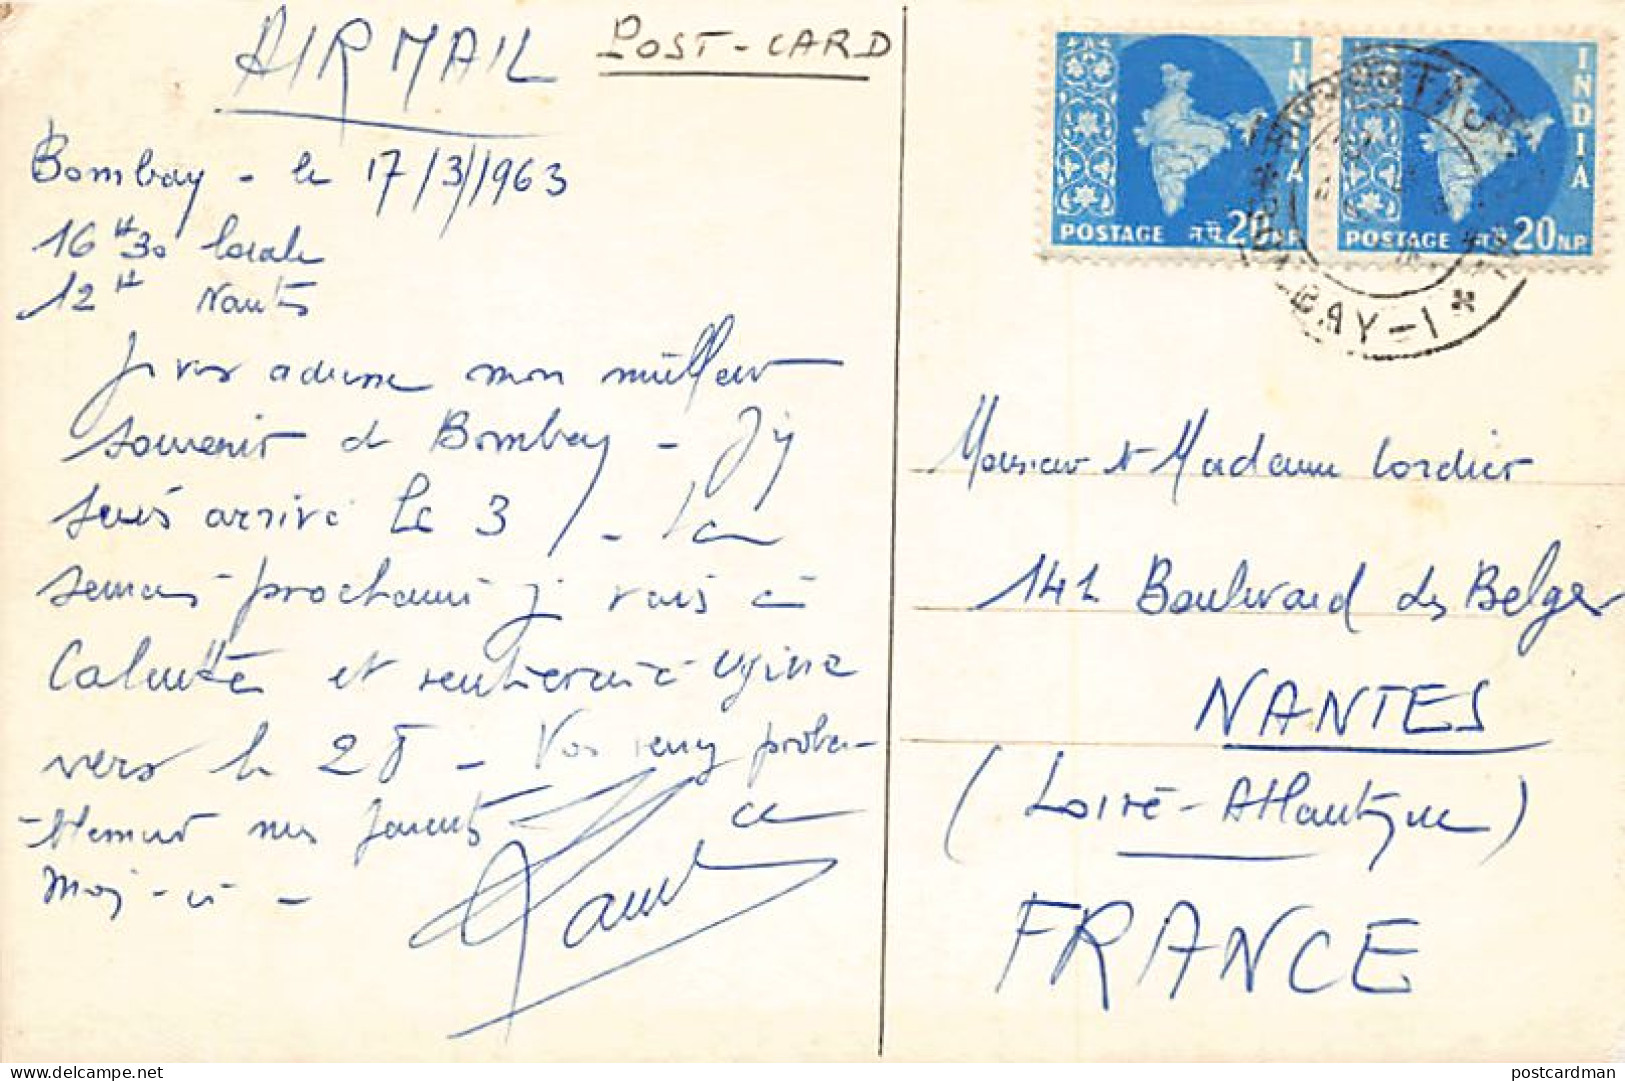 AIR MAIL
POST-CARD
Bombay - le 17/3/1963
16H30 locale
12H Nantes
Je vous adresse mon meilleur
souvenir de Bombay - J'y
suis arrivé le 3 - La
semaine prochaine je vais à
Calcutta et rentrerai à
vers le 28 - Vous verrez proba-
-blement mes parents ce
mois-ci -
INDIA
POSTAGE न.पै. 20 N.P.
INDIA
POSTAGE न.पै. 20 N.P.
BAY-1
Monsieur et Madame Cordier
142 Boulevard des Belges
NANTES
(Loire-Atlantique)
FRANCE
www.delcampe.net
postcardman